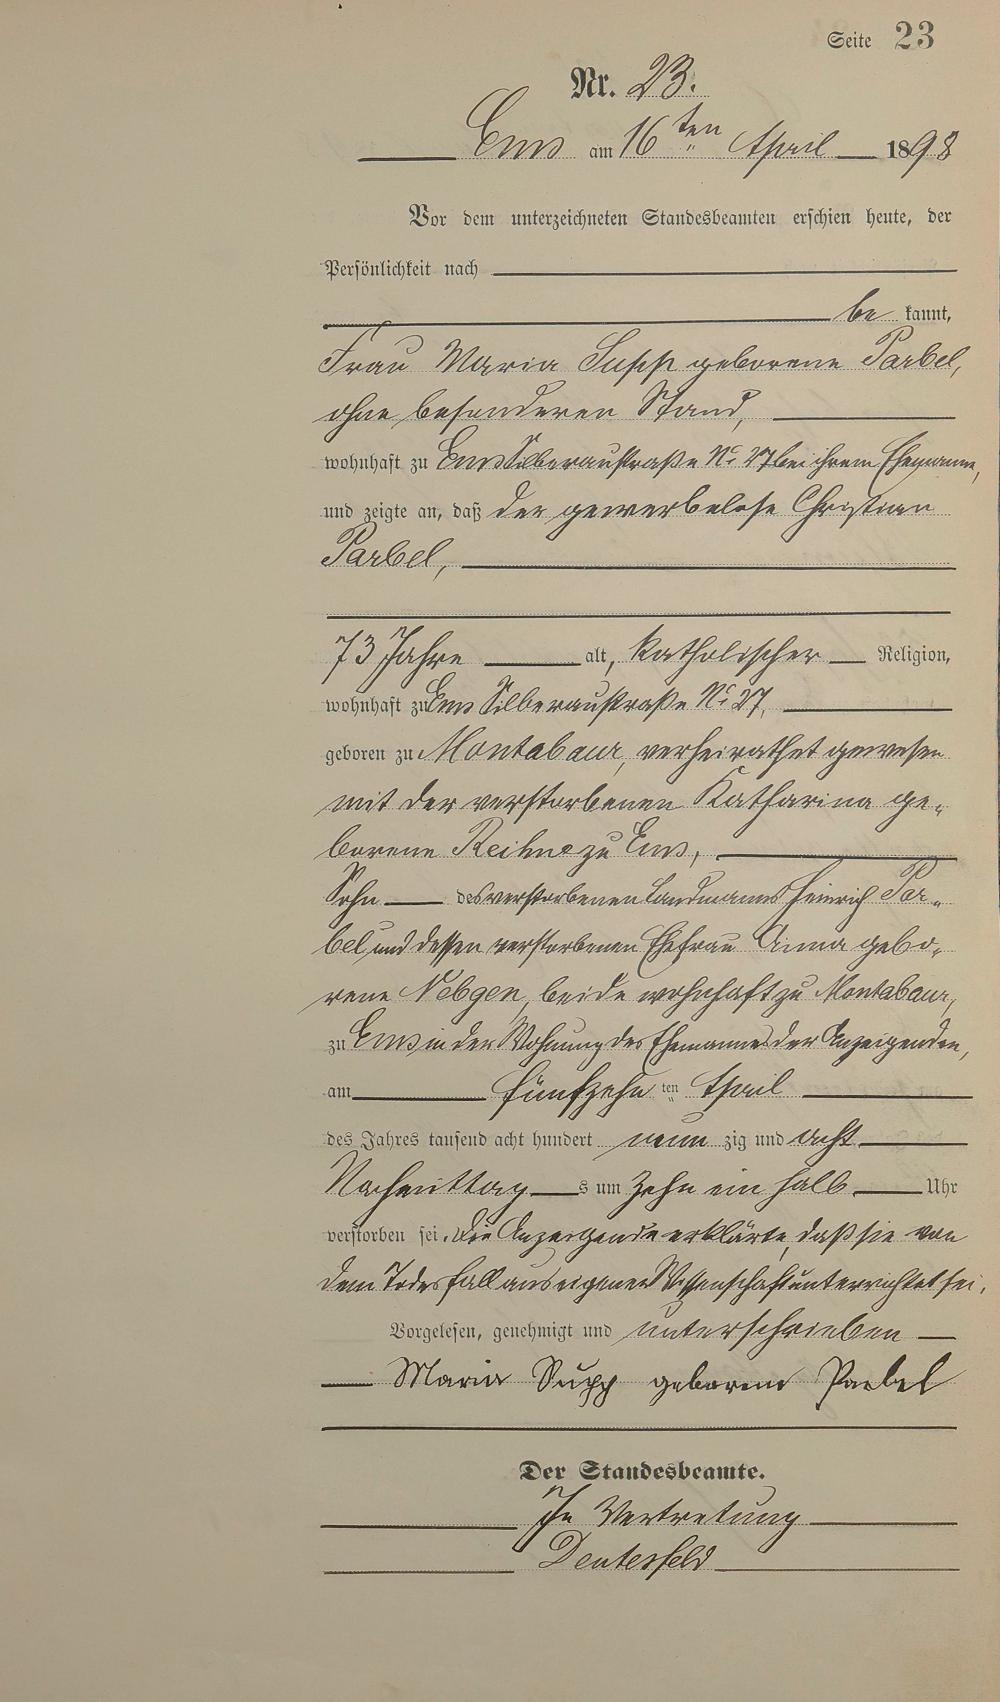 Seite 23
Nr. 23.
Ems am 16ten April 1898
Vor dem unterzeichneten Standesbeamten erschien heute, der
Persönlichkeit nach
be kannt,
Frau Maria Supp geborene Parbel,
ohne besonderen Stand,
wohnhaft zu Ems Silberaustraße No 27 bei ihrem Ehemanne,
und zeigte an, daß der gewerbelose Christian
Parbel,
73 Jahre alt, katholischer Religion,
wohnhaft zu Ems Silberaustraße No 27,
geboren zu Montabaur, verheirathet gewesen
mit der verstorbenen Katharina ge-
borene zu Ems,
Sohn des verstorbenen Landmanns Heinrich Par-
bel und dessen verstorbenen Ehefrau Anna gebo-
rene Nebgen, beide wohnhaft zu Montabaur,
zu Ems in der Wohnung des Ehemannes der Anzeigenden,
am fünfzehn ten April
des Jahres tausend acht hundert neun zig und acht
Nachmittag s um zehn ein halb Uhr
verstorben sei. Die Anzeigende erklärte, daß sie von
dem Todesfall aus eigener Wissenschaft unterrichtet sei.
Vorgelesen, genehmigt und unterschrieben
Maria Supp geborene Parbel
Der Standesbeamte.
In Vertretung